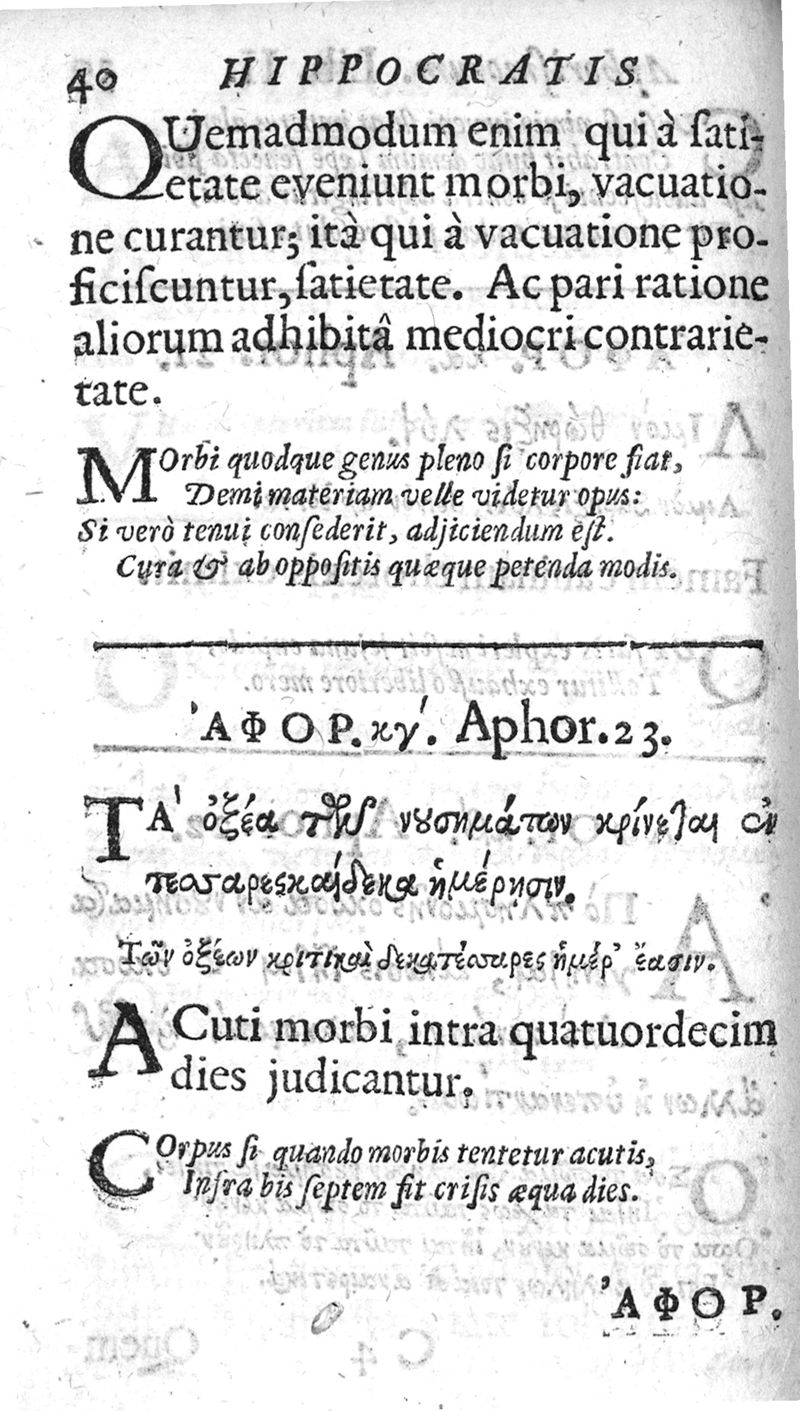 40 HIPPOCRATIS
QUemadmodum enim qui à ſati-
etate eveniunt morbi, vacuatio-
ne curantur; ità qui à vacuatione pro-
ficiſcuntur, ſatietate. Ac pari ratione
aliorum adhibitâ mediocri contrarie-
tate.
MOrbi quodque genus pleno ſi corpore fiat,
Demi materiam velle videtur opus:
Si verò tenui conſederit, adjiciendum eſt.
Cura & ab oppoſitis quæque petenda modis.
ἈΦΟΡ. κγʹ. Aphor. 23.
ΤᾺ ὀξέα τῶν νουσημάτων κρίνεται ἐν
τεσσαρεςκαίδεκα ἡμέρησιν.
Τῶν ὀξέων κριτικαὶ δεκατέσσαρες ἡμέρ' ἔασιν.
ACuti morbi intra quatuordecim
dies judicantur.
COrpus ſi quando morbis tentetur acutis,
Infra bis ſeptem fit criſis æqua dies.
ἈΦΟΡ.